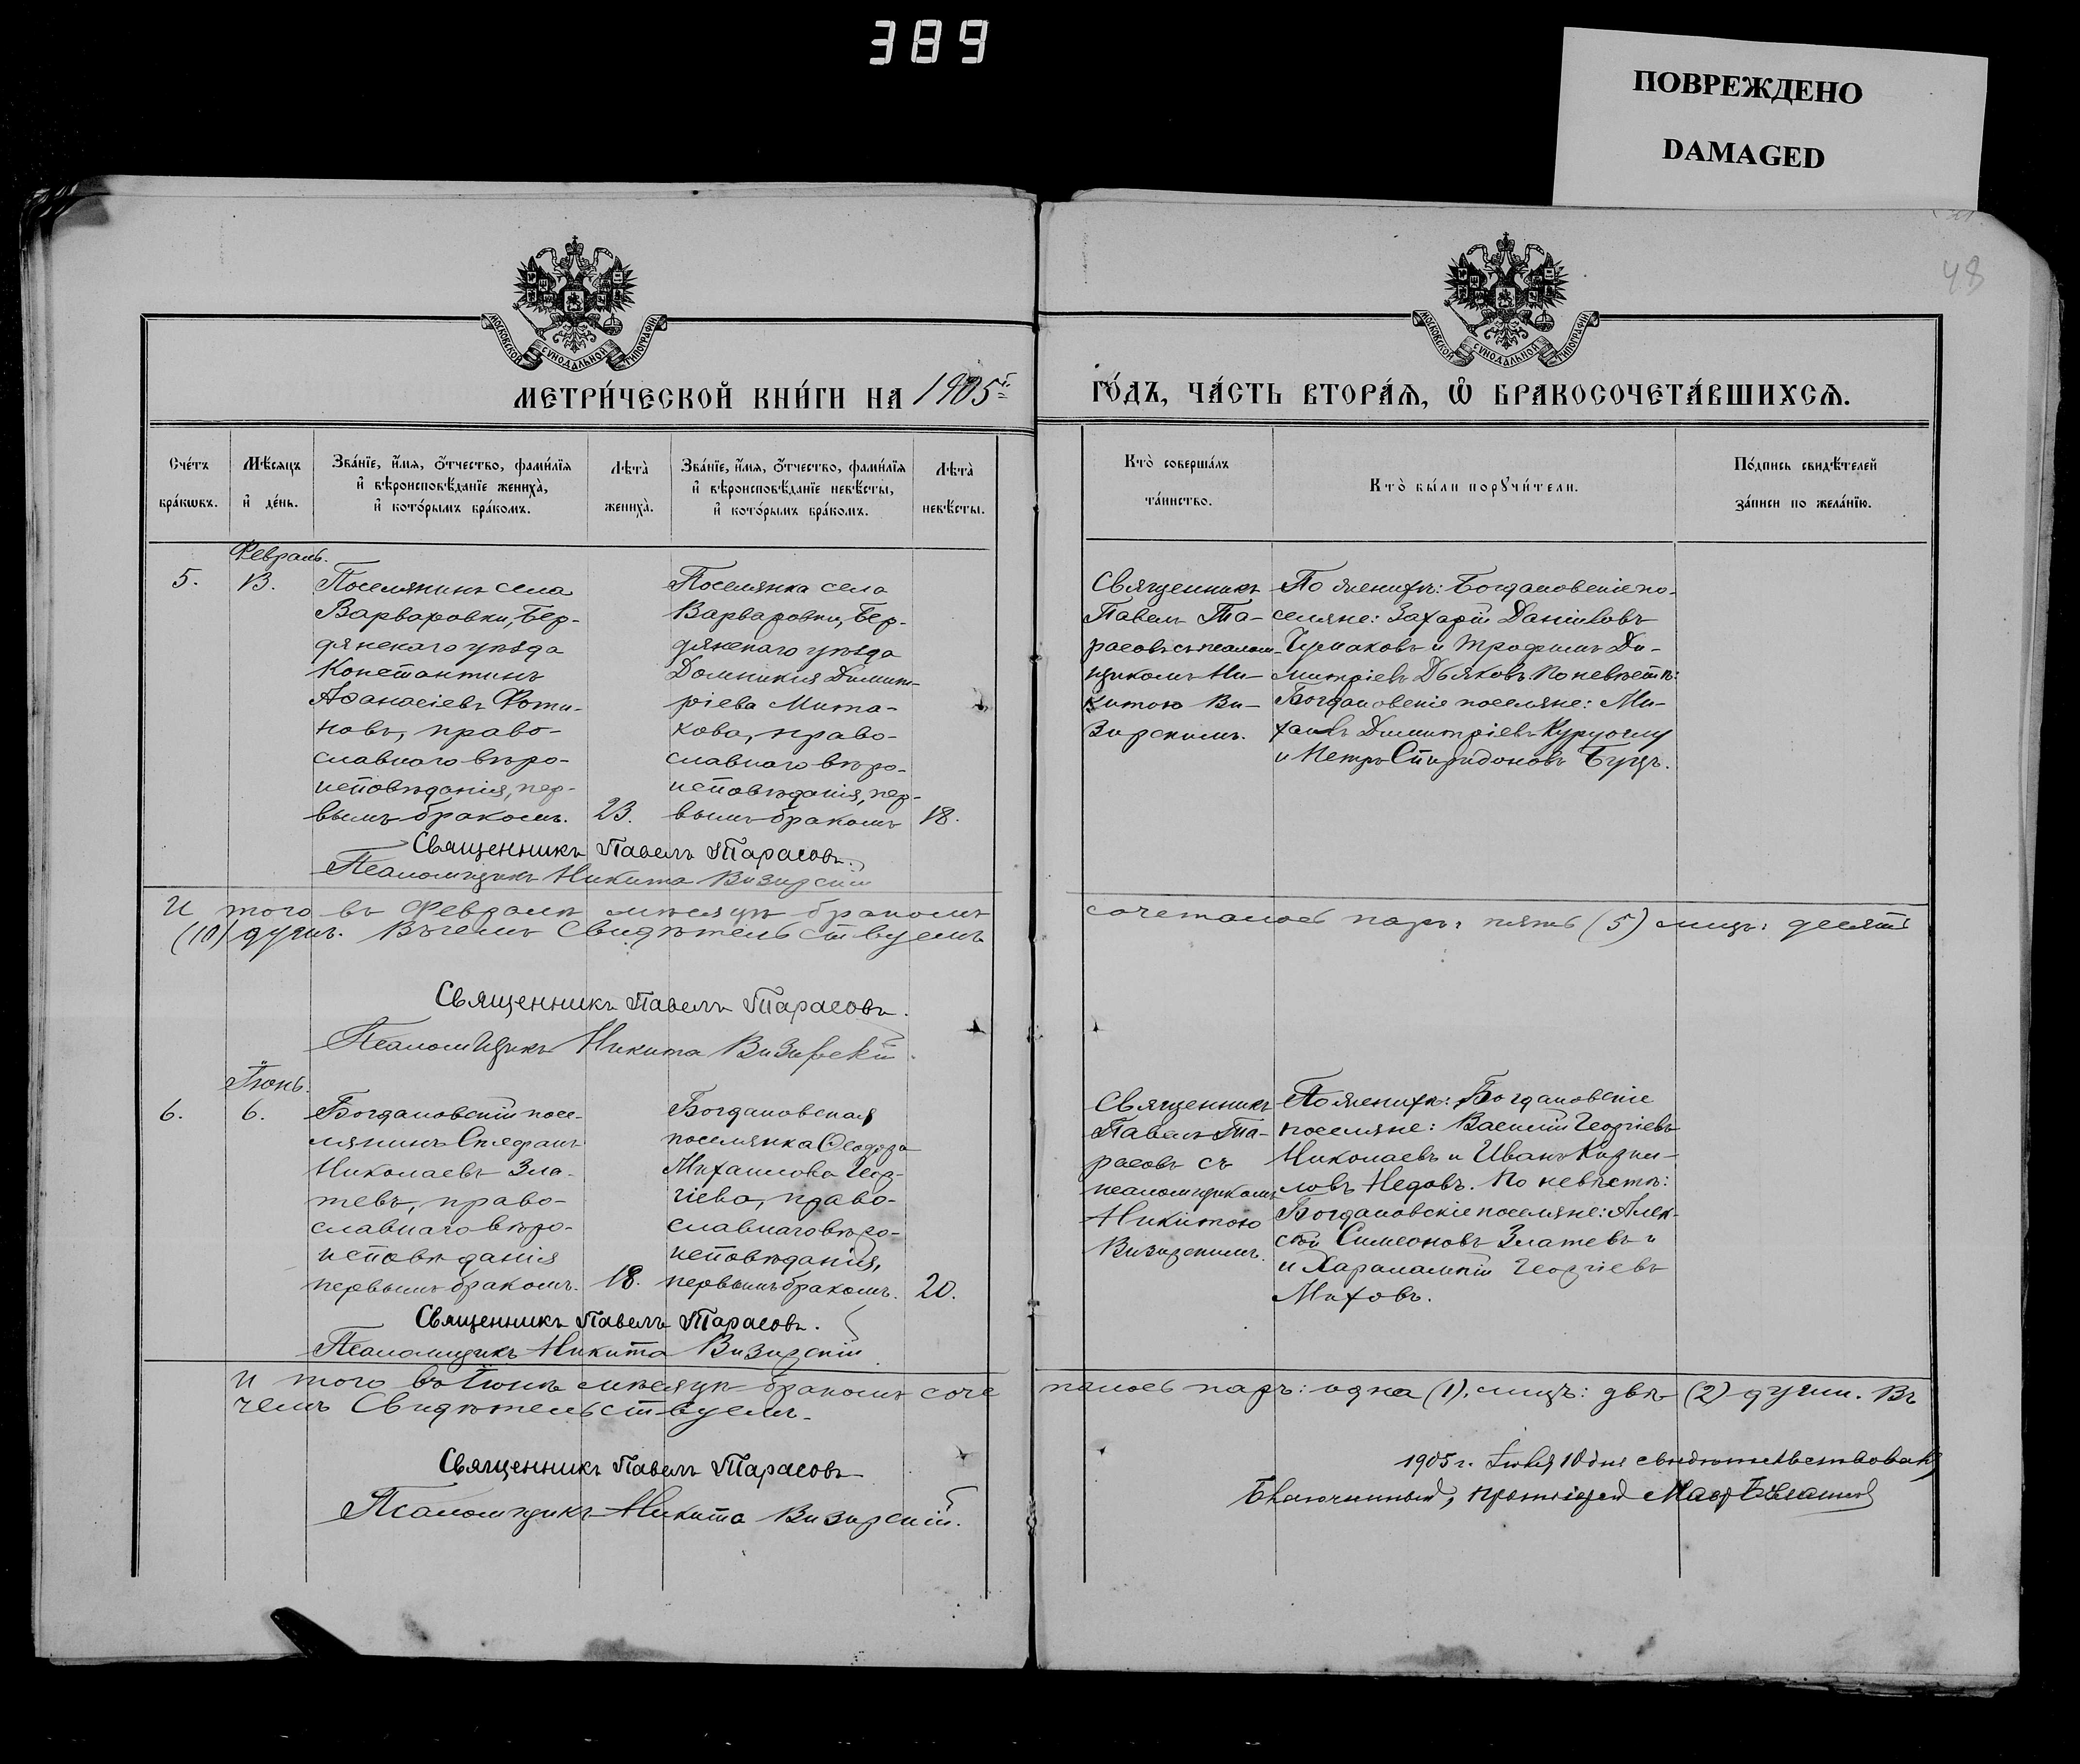 389
ПОВРЕЖДЕНО
DAMAGED
48
МОСКОВСКОЙ СѴНОДАЛЬНОЙ ТИПОГРАФІИ
МОСКОВСКОЙ СѴНОДАЛЬНОЙ ТИПОГРАФІИ
МЕТРИ́ЧЕСКОЙ КНИ́ГИ НА 1905й
ГО́ДЪ, ЧА́СТЬ ВТОРА́Ѧ, Ѽ БРАКОСОЧЕТА́ВШИХСѦ.
Сче́тъ бра́кѡвъ.
Мѣ́сяцъ и҆ де́нь.
Зва́нїе, и҆́мя, ѻ҆́тчество, фами́лїя
и҆ вѣроисповѣ́данїе жениха̀,
и҆ кото́рымъ бра́комъ.
Лѣта̀ жениха̀.
Зва́нїе, и҆́мя, ѻ҆́тчество, фами́лїя
и҆ вѣроисповѣ́данїе невѣ́сты,
и҆ кото́рымъ бра́комъ.
Лѣта̀ невѣ́сты.
Кто̀ соверша́лъ
та́инство.
Кто̀ бы́ли порꙋчи́тели.
По́дпись свидѣ́телей
за́писи по жела́нїю.
Февраль.
5.
13.
Поселянинъ села
Варваровки, Бер-
дянскаго уѣзда
Константинъ
Аѳанасіевъ Фоти-
новъ, право-
славнаго вѣро-
исповѣданія, пер-
вымъ бракомъ.
23.
Поселянка села
Варваровки, Бер-
дянскаго уѣзда
Домникія Димит-
ріева Мита-
кова, право-
славнаго вѣро-
исповѣданія, пер-
вымъ бракомъ
18.
Священникъ
Павелъ Та-
расовъ съ псалом-
щикомъ Ни-
китою Ви-
зирскимъ.
По женихѣ: Богдановскіе по-
селяне: Захарій Даніиловъ
Чумаковъ и Трофимъ Ди-
митріевъ Дьяковъ. По невѣстѣ:
Богдановскіе поселяне: Ми-
хаилъ Димитріевъ Куруочлу
и Петръ Спиридоновъ Буцъ.
Священникъ Павелъ Тарасовъ.
Псаломщикъ Никита Визирскій
И того въ Февралѣ мѣсяцѣ бракомъ
сочеталось паръ: пять (5) лицъ: десять
(10) душъ. Въ чемъ Свидѣтельствуемъ
Священникъ Павелъ Тарасовъ.
Псаломщикъ Никита Визирскій
Іюнь.
6.
6.
Богдановскій посе-
лянинъ Стефанъ
Николаевъ Зла-
тевъ, право-
славнаго вѣро-
исповѣданія
первымъ бракомъ.
18.
Богдановская
поселянка Ѳеодора
Михаилова Геор-
гіева, право-
славнаго вѣро-
исповѣданія,
первымъ бракомъ.
20.
Священникъ
Павелъ Та-
расовъ съ
псаломщикомъ
Никитою
Визирскимъ.
По женихѣ: Богдановскіе
поселяне: Василій Георгіевъ
Николаевъ и Иванъ Кирил-
ловъ Недовъ. По невѣстѣ:
Богдановскіе поселяне: Алек-
сѣй Симеоновъ Златевъ
и Харалампій Георгіевъ
Миховъ.
Священникъ Павелъ Тарасовъ.
Псаломщикъ Никита Визирскій
И того въ Іюнѣ мѣсяцѣ бракомъ соче
талось паръ: одна (1), лицъ: двѣ (2) души. Въ
чемъ Свидѣтельствуемъ.
Священникъ Павелъ Тарасовъ
Псаломщикъ Никита Визирскій.
1905 г. Іюля 10 дня свидѣтельствовалъ
Благочинный, протоіерей